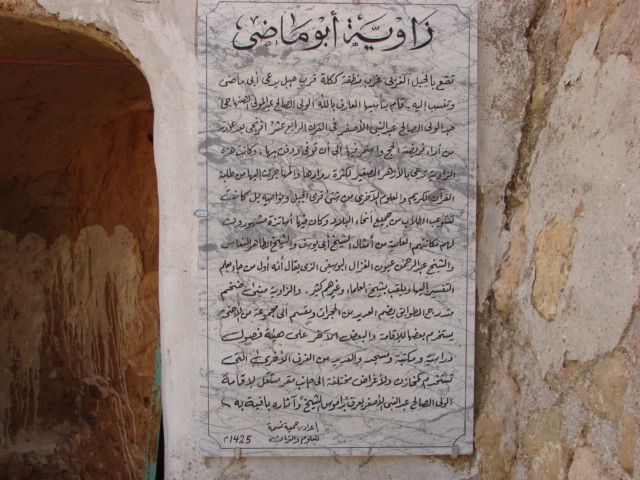 زاوية أبو ماضي
تقع بالجبل الغربي غرب منطقة ككلة قرب جبل يدعى أبي ماضي
وتنسب إليه .. قام بتأسيسها العارف بالله الولي الصالح عبدالمولى الصنهاجي
عبدالمولى الصالح عبدالنبي الأصفر في القرن الرابع عشر افرنجي بعد عودته
من أداء فريضة الحج واستمر فيها إلى أن توفي ودفن بها . وكانت هذه
الزاوية تدعى بالأزهر الصغير لكثرة روادها من طلبة
القرآن الكريم والعلوم الأخرى من شتى قرى الجبل ونواحيه بل كانت
تستوعب الطلاب من جميع أنحاء البلاد وكان فيها أساتذة مشهورون
لهم مكانتهم العلمية من أمثال الشيخ أبي يوسف والشيخ الطاهر النعاس
والشيخ عبدالرحمن عيون الغزال اليوسفي الذي يقال أنه أول من جاء بعلم
التفسير إليها ويلقب بشيخ العلماء وغيرهم كثير . والزاوية مبنى ضخم
متدرج الطوابق يضم العديد من الحجرات ومقسم إلى مجموعة من الأجنحة
يستخدم بعضها للإقامة والبعض الآخر على هيئة فصول
دراسية ومكتبة ومسجد والعديد من الغرف الأخرى التي
تستخدم كمخازن ولأغراض مختلفة إلى جانب مقر مستقل لإقامة
الولي الصالح عبدالنبي الأصفر يعرف "بداموس الشيخ" وآثاره باقية به
إعداد: جمعية
للعلوم والتراث
1425م